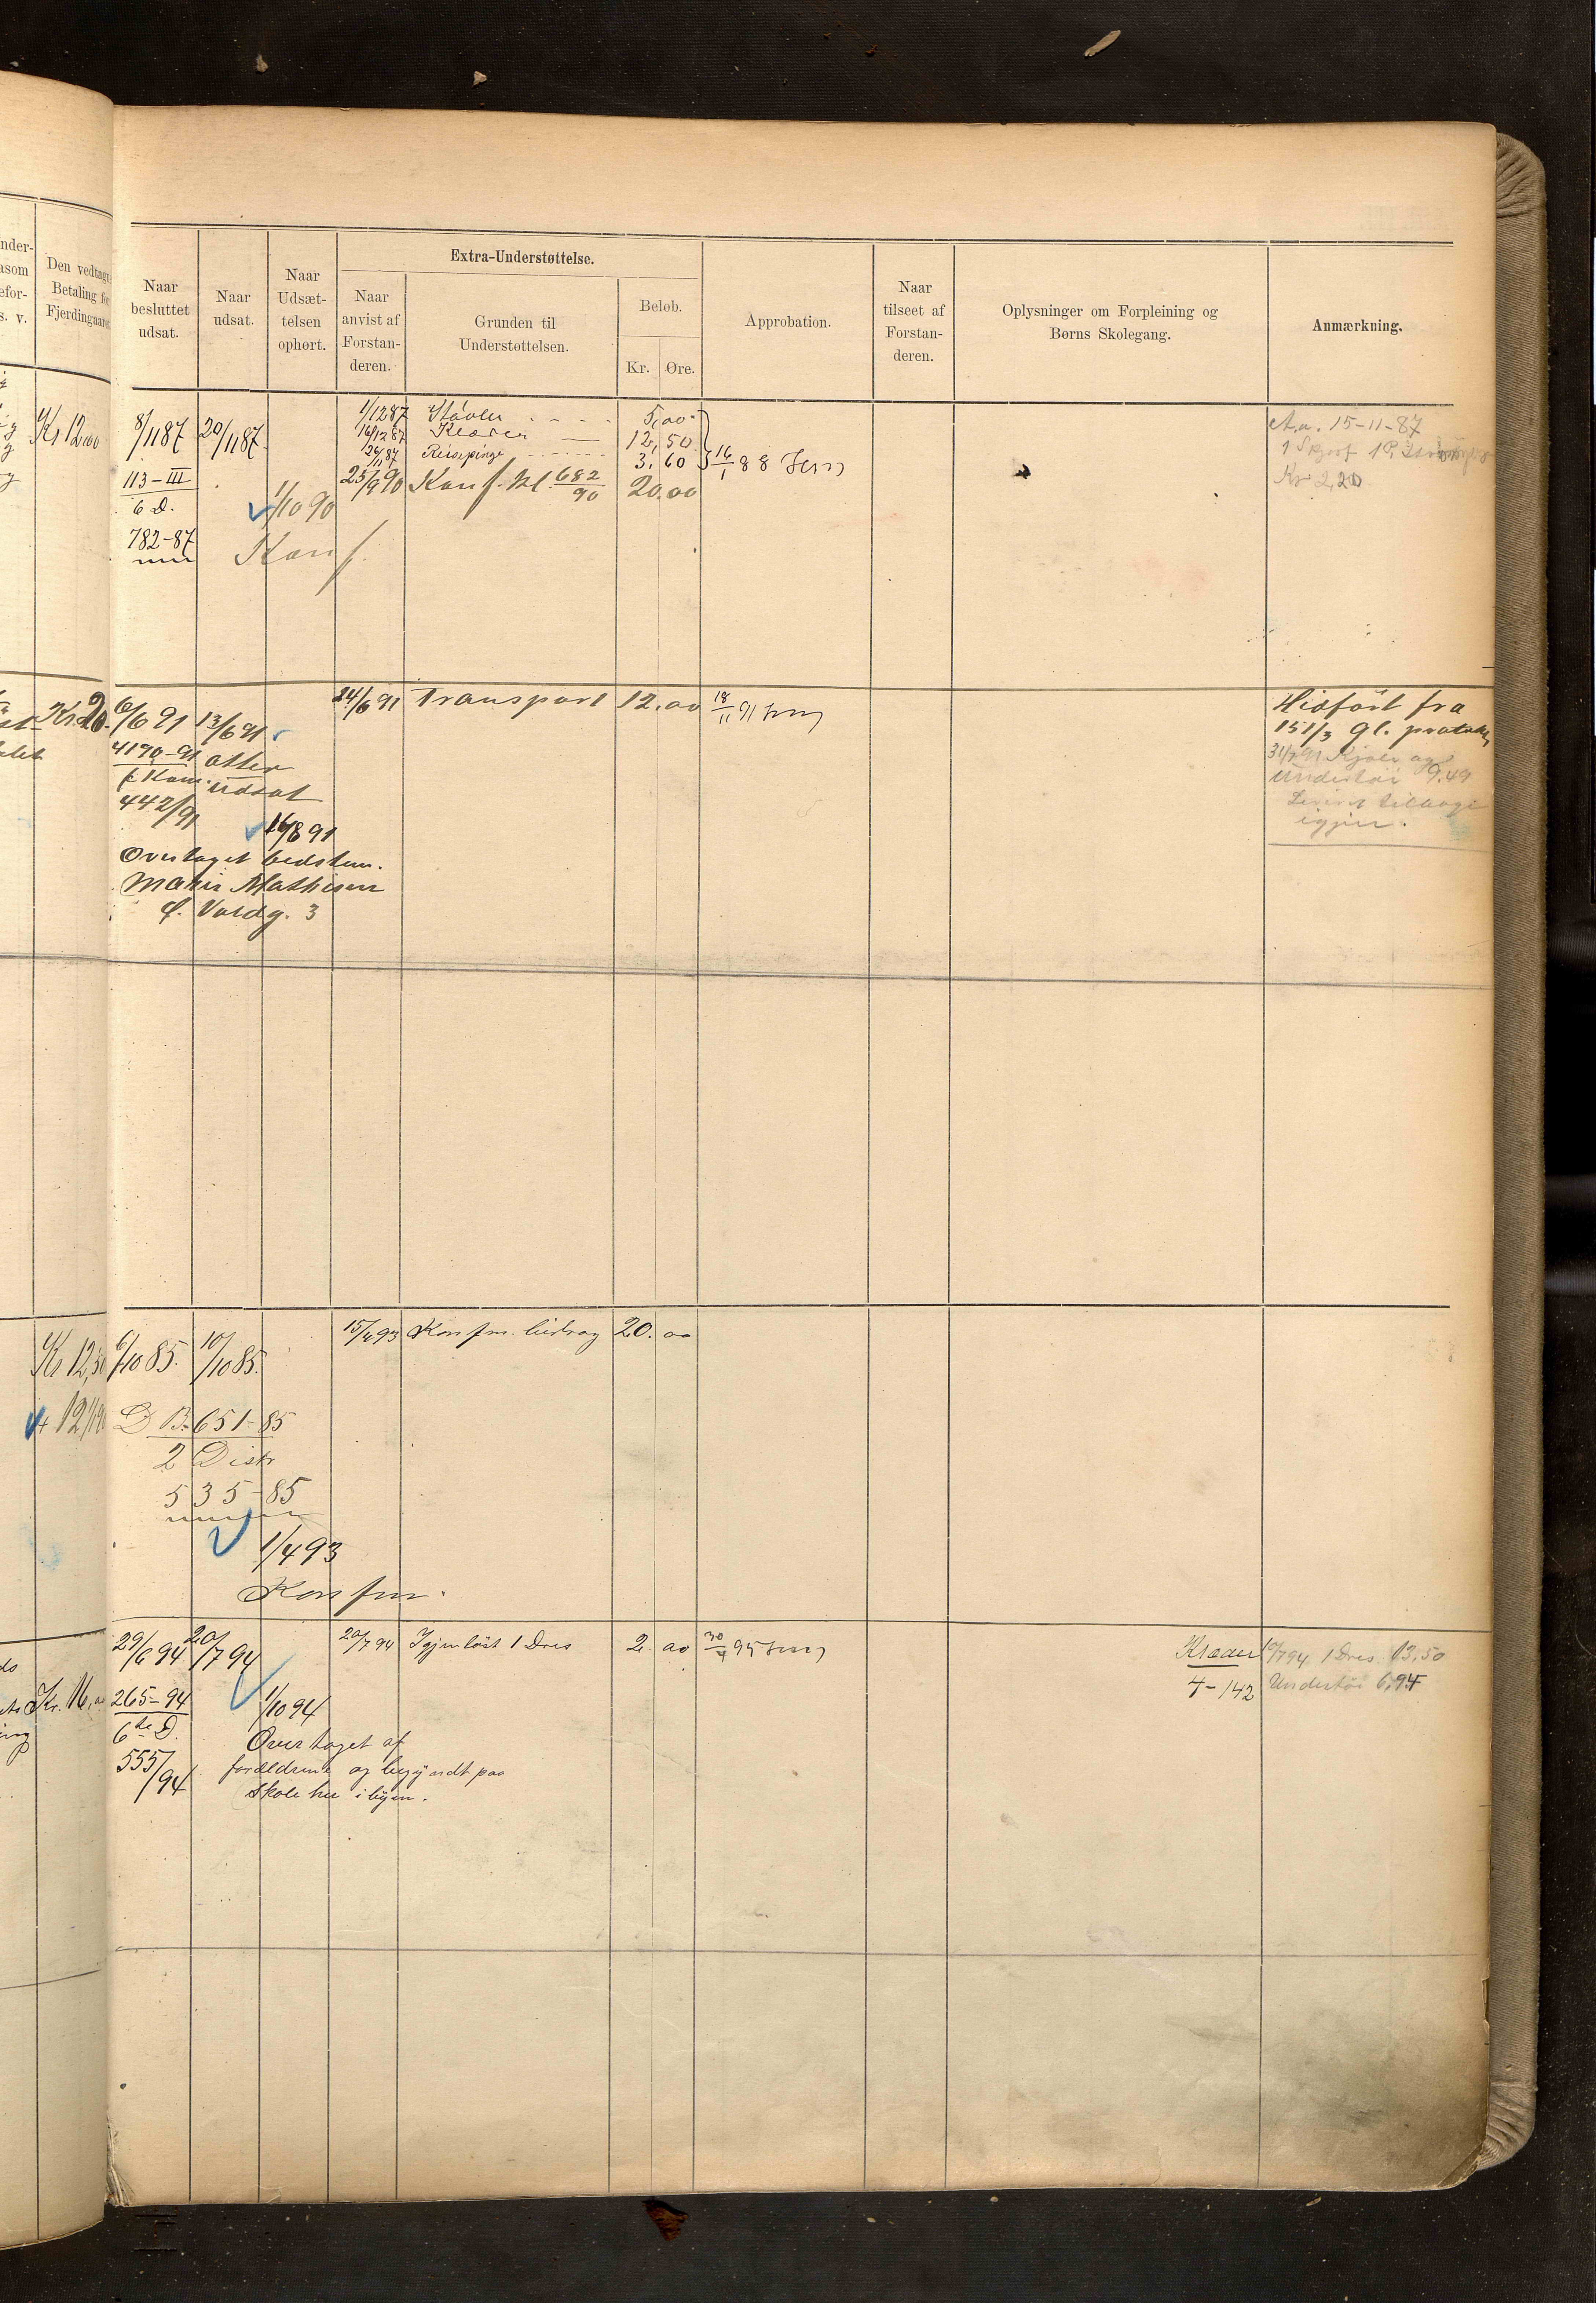 nder-
som
efor-
s. v.
Den vedtagne
Betaling for
Fjerdingaaret
Naar
besluttet
udsat.
Naar
udsat.
Naar
Udsæt-
telsen
ophørt.
Extra-Understøttelse.
Naar
anvist af
Forstan-
deren.
Grunden til
Understøttelsen.
Beløb.
Kr.
Øre.
Approbation.
Naar
tilseet af
Forstan-
deren.
Oplysninger om Forpleining og
Børns Skolegang.
Anmærkning.
Kr 12.00
8/11 87
20/11 87.
113-III
6 D.
782-87
1/10 90
Konf.
1/12 87 Støvler 5,00
16/12 87 Klæder 12,50
26/11 87 Reisepenge 3.60
16/1 88
23/9 90 Konf. Kl. 682/90 20.00
A.a. 15-11-87
Kr 2,20
Kr. 20.
6/6 91
13/6 91
4190-91
atter
udsat
442/91
16/8 91
Overtaget bedstem.
Marie Mathisen
Ø. Vardg. 3
24/6 91 Transport 12.00
18/11 91
Hidført fra
151/3 gl. protok
31/7 91 Kjole og
Undertøi 9.49
Leveret tilbage
igjen.
Kr 12,50
6/10 85.
10/10 85.
D B. 651-85
2 Distr
535-85
1/4 93
Konfm.
15/4 93 Konfm. bidrag 20.00
Kr. 16,00
29/6 94
20/7 94
265-94
6te D.
555/94
1/10 94
Overtaget af
forældrene og begyndt paa
Skole her i byen.
20/7 94 Igjenløst 1 Dres 2.00
30/4 95
Klæder
4-142
1 Dres 13.50
Undertøi 6,94